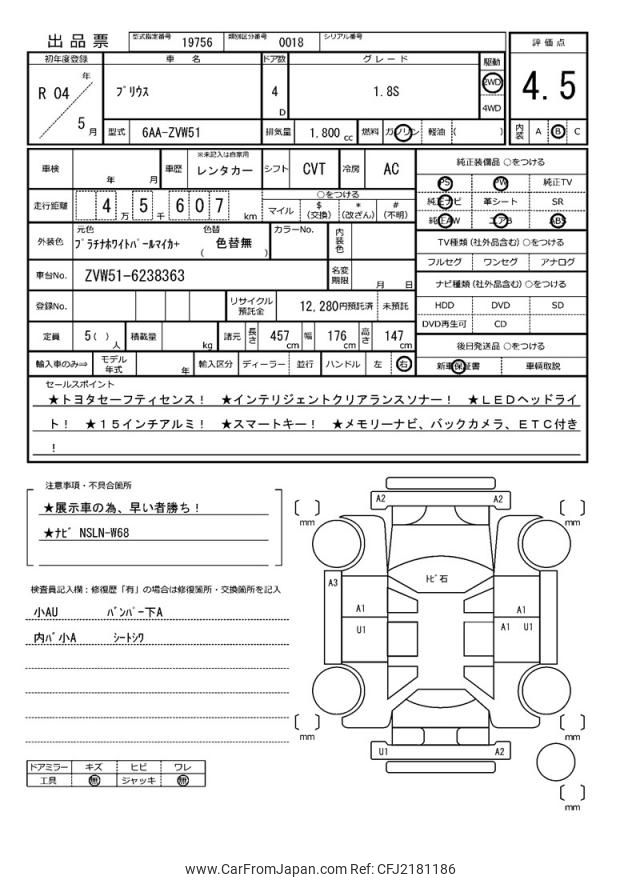 出品票
型式指定番号 19756 類別区分番号 0018 シリアル番号
評価点
4.5
内装 A B C
初年度登録 車名 ドア数 グレード 駆動
R 04 年 5 月
プリウス
4 D
1.8S
2WD
4WD
型式 6AA-ZVW51 排気量 1.800 cc 燃料 ガソリン 軽油 ( )
車検 年 月 車歴 ※未記入は自家用 レンタカー シフト CVT 冷房 AC
走行距離 4 万 5 千 6 0 7 km
○をつける
マイル $ (交換) * (改ざん) # (不明)
外装色 元色 プラチナホワイトパールマイカ+ 色替 ( 色替無 ) カラーNo. 内装色
車台No. ZVW51-6238363 名変期限 月 日
登録No. リサイクル預託金 12,280円預託済 未預託
定員 5( )人 積載量 kg 諸元 長さ 457cm 幅 176cm 高さ 147cm
輸入車のみ⇒ モデル年式 年 輸入区分 ディーラー 並行 ハンドル 左 右
純正装備品 ○をつける
PS PW 純正TV
純正ナビ 革シート SR
純正AW エアB ABS
TV種類(社外品含む)○をつける
フルセグ ワンセグ アナログ
ナビ種類(社外品含む)○をつける
HDD DVD SD
DVD再生可 CD
後日発送品 ○をつける
新車保証書 車輌取説
セールスポイント
★トヨタセーフティセンス! ★インテリジェントクリアランスソナー! ★LEDヘッドライ
ト! ★15インチアルミ! ★スマートキー! ★メモリーナビ、バックカメラ、ETC付き
!
注意事項・不具合箇所
★展示車の為、早い者勝ち!
★ナビ NSLN-W68
検査員記入欄:修復歴「有」の場合は修復箇所・交換箇所を記入
小AU バンパー下A
内バ小A シートシワ
ドアミラー キズ ヒビ ワレ
工具 無 ジャッキ 無
A2 A2
mm mm
トビ石
A3
A1 A1
U1 A1 U1
mm mm
U1 A2
mm
www.CarFromJapan.com Ref: CFJ2181186